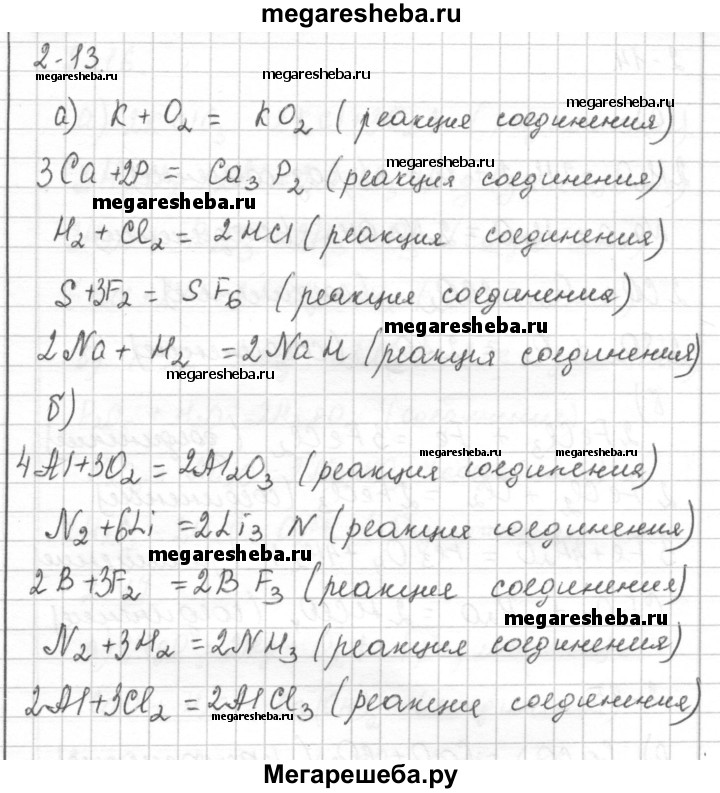 megaresheba.ru
2-13.
megaresheba.ru megaresheba.ru
megaresheba.ru
а) K + O₂ = KO₂ (реакция соединения)
megaresheba.ru
3Ca + 2P = Ca₃P₂ (реакция соединения)
megaresheba.ru
H₂ + Cl₂ = 2HCl (реакция соединения)
S + 3F₂ = SF₆ (реакция соединения)
megaresheba.ru
2Na + H₂ = 2NaH (реакция соединения)
megaresheba.ru
б)
megaresheba.ru megaresheba.ru
4Al + 3O₂ = 2Al₂O₃ (реакция соединения)
N₂ + 6Li = 2Li₃N (реакция соединения)
megaresheba.ru
2B + 3F₂ = 2BF₃ (реакция соединения)
megaresheba.ru
N₂ + 3H₂ = 2NH₃ (реакция соединения)
2Al + 3Cl₂ = 2AlCl₃ (реакция соединения)
megaresheba.ru
Мегарешеба.ру